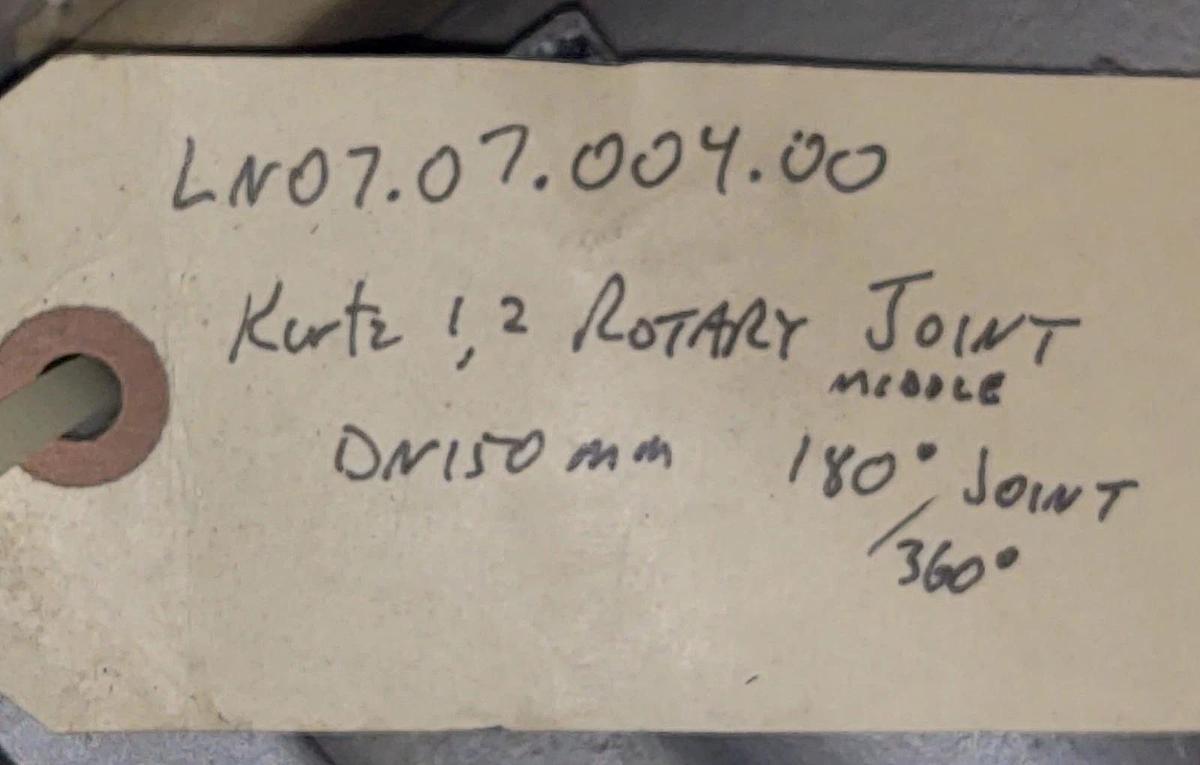 LN07.07.004.00
Kurtz 1,2 ROTARY JOINT
MIDDLE
DN150 mm 180° JOINT
/360°